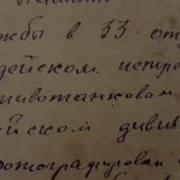 жбы в 33 от
дейском истре
ивотанковом
йском диви
фотографирован